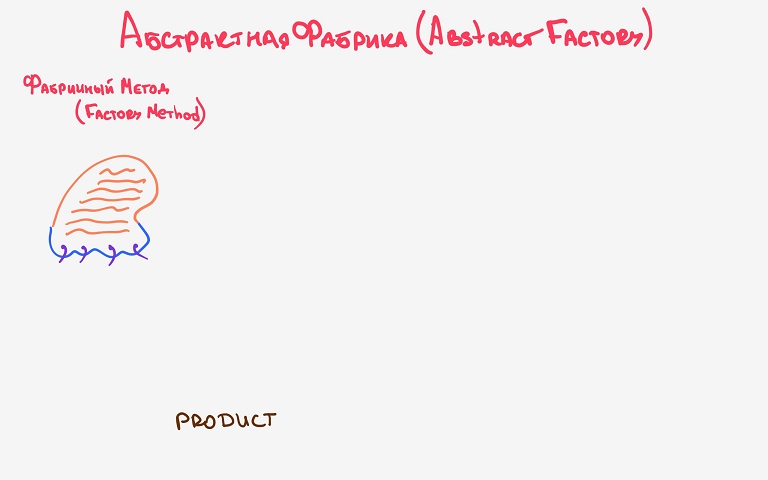 Абстрактная Фабрика (Abstract Factory)
Фабричный Метод
(Factory Method)
PRODUCT